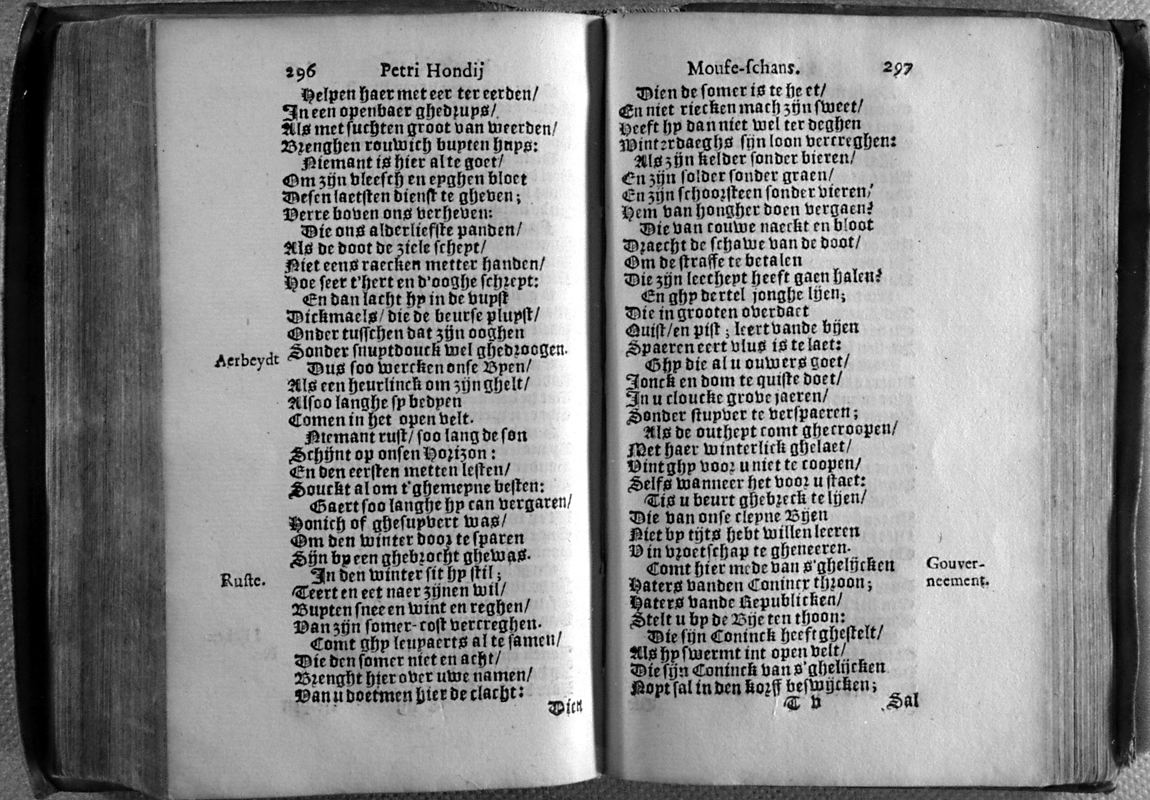 296 Petri Hondij
Helpen haer met eer ter eerden/
In een openbaer ghedruys/
Als met suchten groot van weerden/
Brenghen rouwich buyten huys:
Niemant is hier al te goet/
Om zijn vleesch en eyghen bloet
Desen laetsten dienst te gheven;
Verre boven ons verheven:
Die ons alderliefste panden/
Als de doot de ziele schept/
Niet eens raecken metter handen/
Hoe seer t'hert en d'ooghe schrept:
En dan lacht hy in de vuyst
Dickmaels/ die de beurse pluyst/
Onder tusschen dat zijn ooghen
Sonder snuptdouck wel ghedroogen.
Aerbeydt
Dus soo wercken onse Byen/
Als een heurlinck om zijn ghelt/
Alsoo langhe sy bedyen
Comen in het open velt.
Niemant rust/ soo lang de son
Schijnt op onsen Horizon:
En den eersten metten lesten/
Souckt al om t'ghemeyne besten:
Gaert soo langhe hy can vergaren/
Honich of ghesuyvert was/
Om den winter door te sparen
Sijn by een ghebrocht ghewas.
Ruste.
In den winter sit hy stil;
Teert en eet naer zijnen wil/
Buyten snee en wint en reghen/
Van zijn somer-cost vercreghen.
Comt ghy leuyaerts al te samen/
Die den somer niet en acht/
Brenght hier over uwe namen/
Van u doetmen hier de clacht:
Dien
Mouse-schans. 297
Dien de somer is te heet/
En niet riecken mach zijn sweet/
Heeft hy dan niet wel ter deghen
Winterdaeghs sijn loon vercreghen:
Als zijn kelder sonder bieren/
En zijn solder sonder graen/
En zijn schoorsteen sonder vieren/
Hem van hongher doen vergaen?
Die van couwe naeckt en bloot
Draecht de schawe van de doot/
Om de straffe te betalen
Die zijn leetheyt heeft gaen halen?
En ghy dertel jonghe lijen;
Die in grooten overdaet
Quist/ en pist; leert vande bijen
Spaeren eert vlus is te laet:
Ghy die al u ouwers goet/
Jonck en dom te quiste doet/
In u cloucke grove jaeren/
Sonder stuyver te verspaeren;
Als de outheyt comt ghecroopen/
Met haer winterlick ghelaet/
Vint ghy voor u niet te coopen/
Selfs wanneer het voor u staet:
Tis u beurt ghebreck te lijen/
Die van onse cleyne Bijen
Niet by tijts hebt willen leeren
V in vroetschap te gheneeren.
Gouver-
neement.
Comt hier mede van s'ghelijcken
Haters vanden Coninex throon;
Haters vande Republicken/
Stelt u by de Bije ten thoon:
Die sijn Coninck heeft ghestelt/
Als hy swermt int open velt/
Die sijn Coninck van s'ghelijcken
Noyt sal in den korff beswijcken;
T v Sal